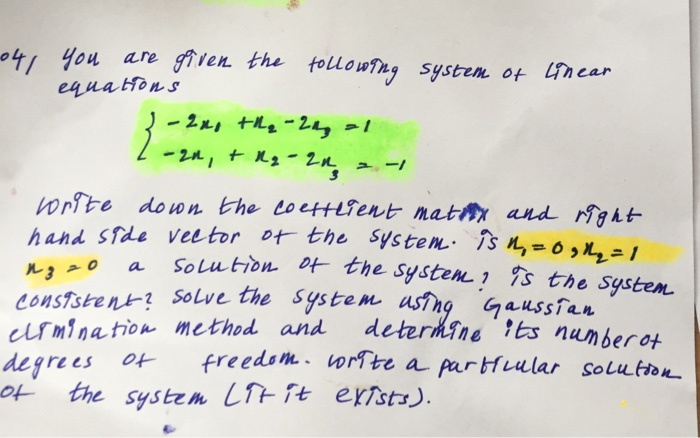 04, You are given the following system of linear
equations
{ -2x₁ + x₂ - 2x₃ = 1
-2x₁ + x₂ - 2x₃ = -1
write down the coefficient matrix and right
hand side vector of the system. is x₁ = 0, x₂ = 1
x₃ = 0 a solution of the system? is the system
consistent? solve the system using Gaussian
elimination method and determine its number of
degrees of freedom. write a particular solution
of the system (if it exists).